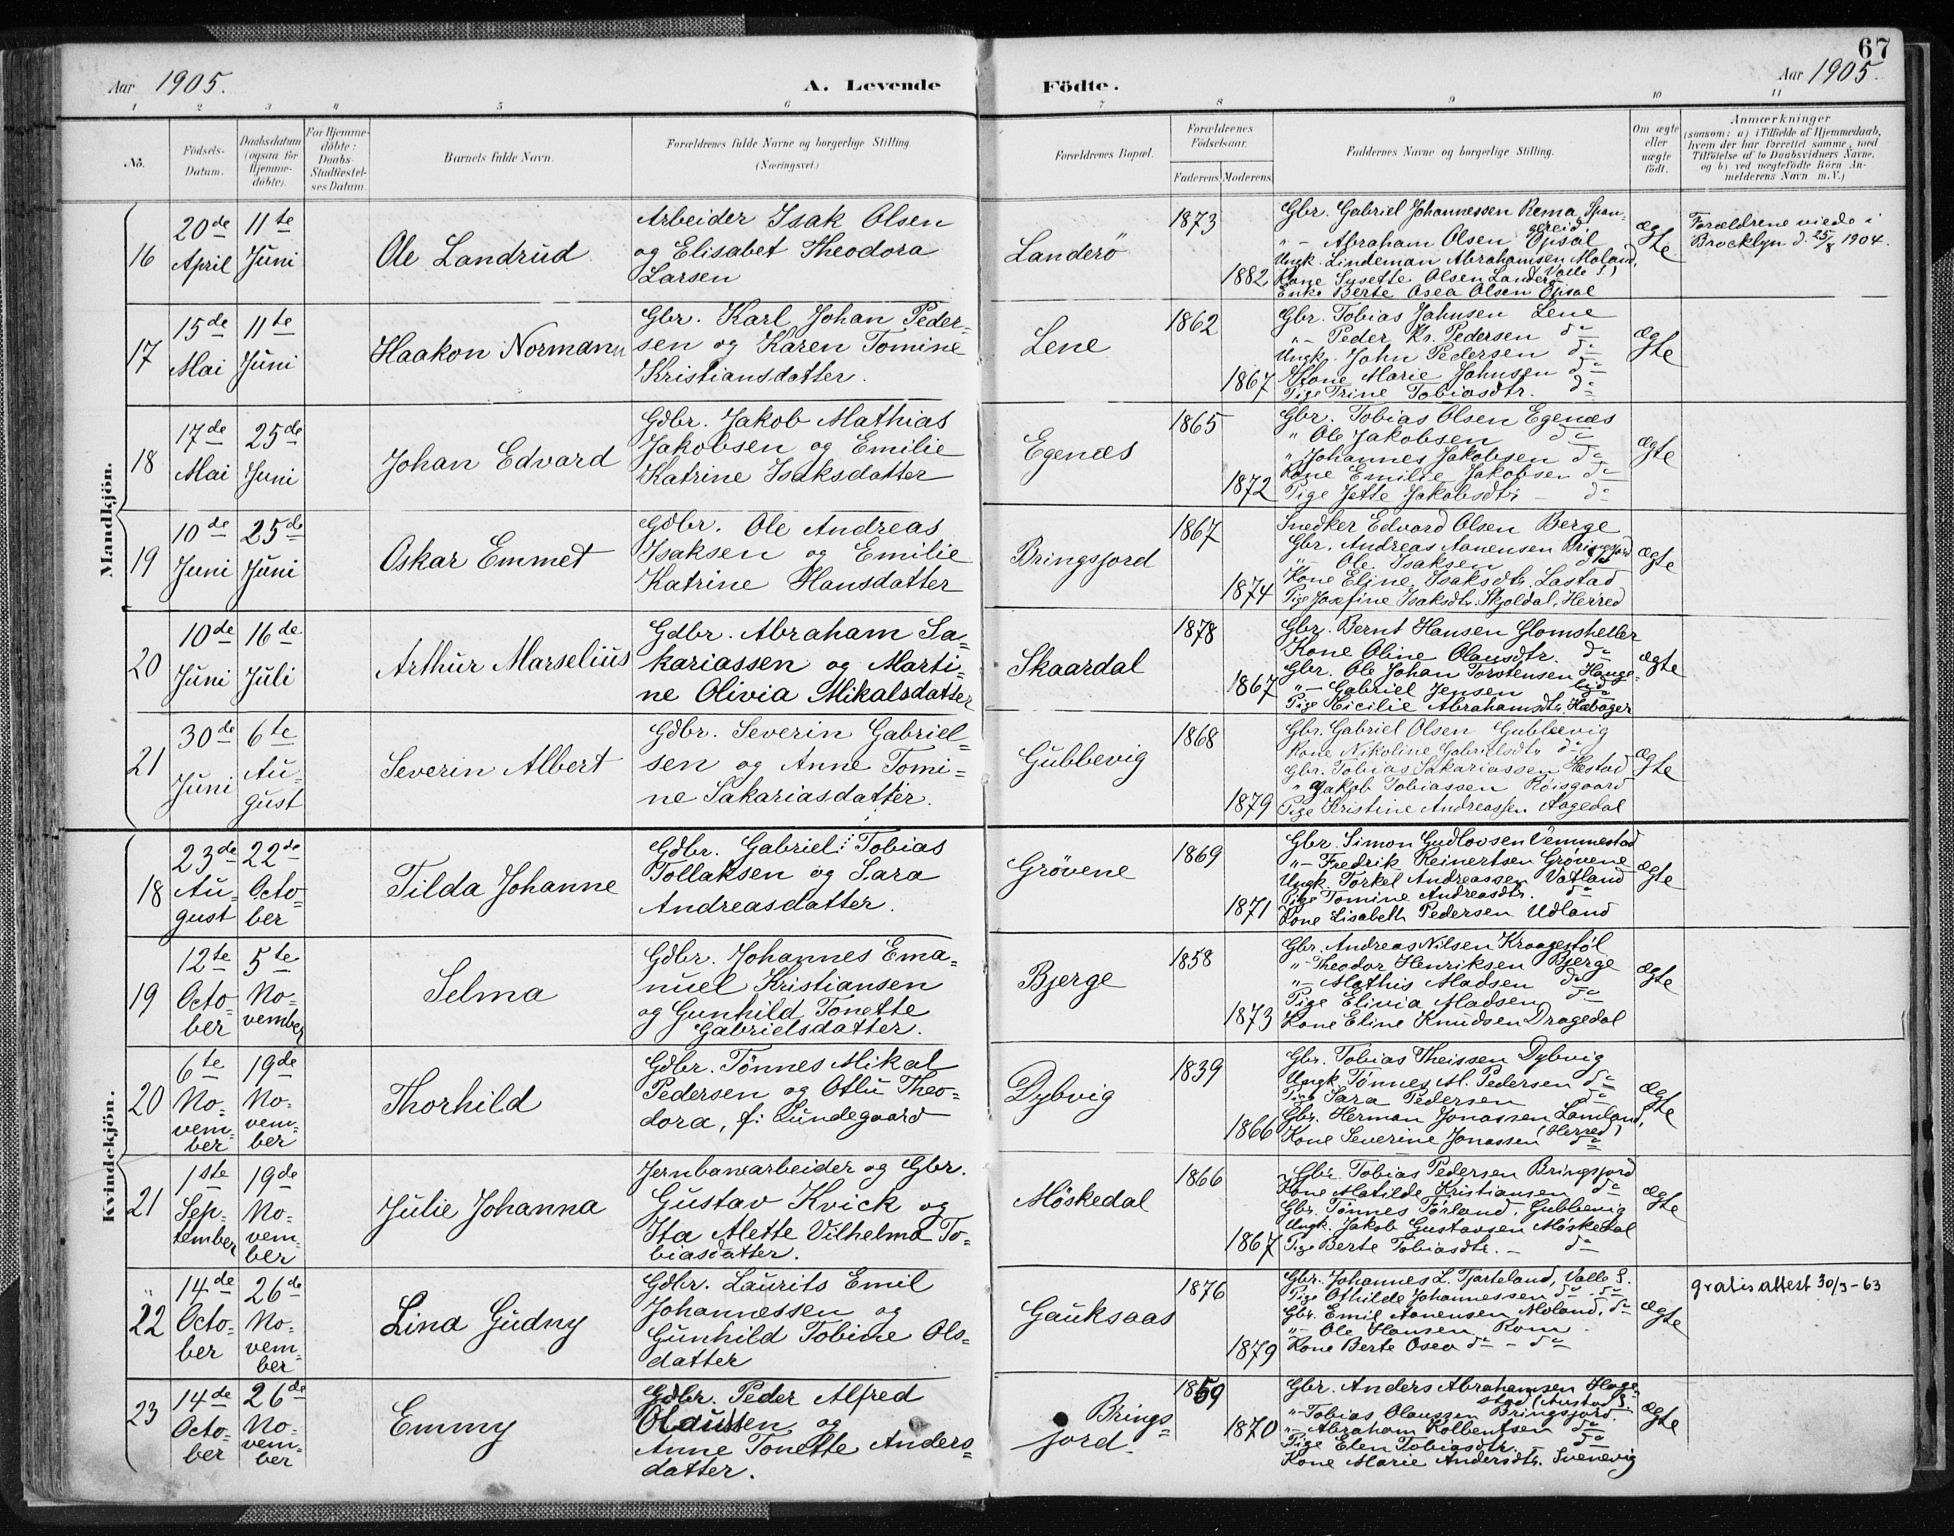 67
Aar 1905.
A. Levende Födte.
Aar 1905.
1 2 3 4 5 6 7 8 9 10 11
No.
Födsels-Datum.
Daabsdatum (ogsaa for Hjemme-döbte).
For Hjemme-döbte: Daabs-Stadfæstel-ses Datum.
Barnets fulde Navn.
Forældrenes fulde Navne og borgerlige Stilling.
(Næringsvei.)
Forældrenes Bopæl.
Forældrenes Födselsaar.
Faderens. Moderens.
Faddernes Navne og borgerlige Stilling.
Om ægte eller uægte födt.
Anmærkninger
(saasom: a) i Tilfælde af Hjemmedaab,
hvem der har forrettet samme, med
Tilföielse af to Daabsvidners Navne,
og b) ved uægtefödte Börn An-
melderens Navn m. V.)
Mandkjön.
16
20de April
11te Juni
Ole Landrud
Arbeider Isak Olsen
og Elisabet Theodora
Larsen
Landerö
1873
1882
Gbr. Gabriel Johannessen Rema, Span-
gereid
"- Abraham Olsen Opsal
Ungk. Lindeman Abrahamsen Moland,
(Valle S.)
Kone Susette Olsen Landerö
Enke Berte Osea Olsen Opsal
ægte
Forældrene viede i
Brocklyn d. 25/8 1904.
17
15de Mai
11te Juni
Haakon Normann
Gbr. Karl Johan Peder-
sen og Karen Tomine
Kristiansdatter.
Lene
1862
1867
Gbr. Tobias Jahnsen Lene
"- Peder Kr. Pedersen do
Ungk. John Pedersen do
Kone Marie Jahnsen do
Pige Trine Tobiasdtr. do
ægte
18
17de Mai
25de Juni
Johan Edvard
Gdbr. Jakob Mathias
Jakobsen og Emilie
Katrine Isaksdatter
Egenæs
1865
1872
Gbr. Tobias Olsen Egenæs
" Ole Jakobsen do
" Johannes Jakobsen do
Kone Emilie Jakobsen do
Pige Jette Jakobsdtr - do
ægte
19
10de Juni
25de Juni
Oskar Emmet
Gdbr. Ole Andreas
Isaksen og Emilie
Katrine Hansdatter
Bringsjord
1867
1874
Snedker Edvard Olsen Berge
Gbr. Andreas Aanensen Bringsjord
"- Ole Isaksen do
Kone Eline Isaksdtr. Lastad
Pige Josefine Isaksdtr. Skjoldal, Herred
ægte
20
10de Juni
16de Juli
Arthur Marselius
Gdbr. Abraham Sa-
kariassen og Marti-
ne Olivia Mikalsdatter
Skaardal
1878
1867
Gbr. Bernt Hansen Glomsheller
Kone Oline Olausdtr. do
Gbr. Ole Johan Torstensen Hauge-
"- Gabriel Jensen
Pige Sicilie Abrahamsdtr. Hæbager
ægte
21
30de Juni
6te Au-
gust
Severin Albert
Gdbr. Severin Gabriel-
sen og Anne Tomi-
ne Sakariasdatter.
Gubbevig
1868
1879
Gbr. Gabriel Olsen Gubbevig
Kone Nikoline Gabrielsdtr do
Gbr. Tobias Sakariassen Hæstad
" Jakob Tobiassen Röisgaard
Pige Kristine Andreassen Aagedal
ægte
Kvindekjön.
18
23de Au-
gust
22de Octo-
ber
Tilda Johanne
Gdbr. Gabriel Tobias
Tollaksen og Sara
Andreasdatter.
Grövene
1869
1871
Gbr. Simon Gudlovsen Vemmestad
"- Fredrik Reinertsen Grövene
Ungk. Torkel Andreassen Vatland
Pige Tomine Andreasdtr. do
Kone Lisabeth Pedersen Udland
ægte
19
12te Octo-
ber
5te No-
vember
Selma
Gdbr. Johannes Ema-
nuel Kristiansen
og Gunhild Tonette
Gabrielsdatter.
Bjerge
1858
1873
Gbr. Andreas Nilsen Kraagestöl
"- Theodor Henriksen Bjerge
"- Mathis Madsen do
Pige Elivia Madsen do
Kone Eline Knudsen Dragedal
ægte
20
6te No-
vem-
ber
19de No-
vem-
ber
Thorhild
Gdbr. Tönnes Mikal
Pedersen og Otlu Theo-
dora, f: Lundegaard
Dybvig
1839
1866
Gbr. Tobias Theissen Dybvig
Ungk. Tönnes M. Pedersen do
Pige Sara Pedersen do
Gbr. Herman Jonassen Lamland,
(Herred)
Kone Severine Jonassen do
ægte
21
1ste Sep-
tember
19de No-
vem-
ber
Julie Johanna
Jernbanearbeider og Gbr.
Gustav Kvick og
Ita Alette Vilhelma To-
biasdatter.
Möskedal
1866
1867
Gbr. Tobias Pedersen Bringsjord
Kone Matilde Kristiansen do
Gbr. Tönnes Törland, Gubbevig
Ungk. Jakob Gustavsen Möskedal
Pige Berte Tobiasdtr. - do
ægte
22
14de Octo-
ber
26de No-
vem-
ber
Lina Gudny
Gdbr. Laurits Emil
Johannessen og
Gunhild Tobine Ols-
datter
Gauksaas
1876
1879
Gbr. Johannes L. Tjarteland, Valle S.
Pige Othilde Johannessen do - do
Gbr. Emil Aanensen Moland, do
"- Ole Hansen Rom
Kone Berte Osea do - do
ægte
gratis attest 30/3-63
23
14de Octo-
ber
26de No-
vem-
ber
Emmy
Gdbr. Peder Alfred
Olaussen og
Anne Tonette Anders-
datter.
Brings-
jord.
1859
1870
Gbr. Anders Abrahamsen Hage-
stad (Austad S.
"- Tobias Olaussen Bringsjord.
"- Abraham Kolbentsen do
Pige Elen Tobiasdtr. do
Kone Marie Andersdtr. Svenevig
ægte